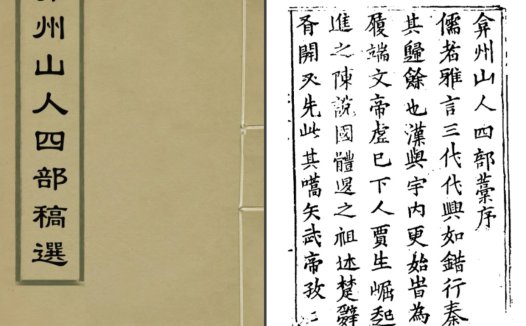 弇州山人四部稿選
弇州山人四部藁序
儒者雅言三代代興如錯行秦
其歸餘也漢與宇内更始皆為
履端文帝虛已下人賈生崛起
進之陳說國體退之祖述楚辭
胥開又先此其嚆矢武帝孜二